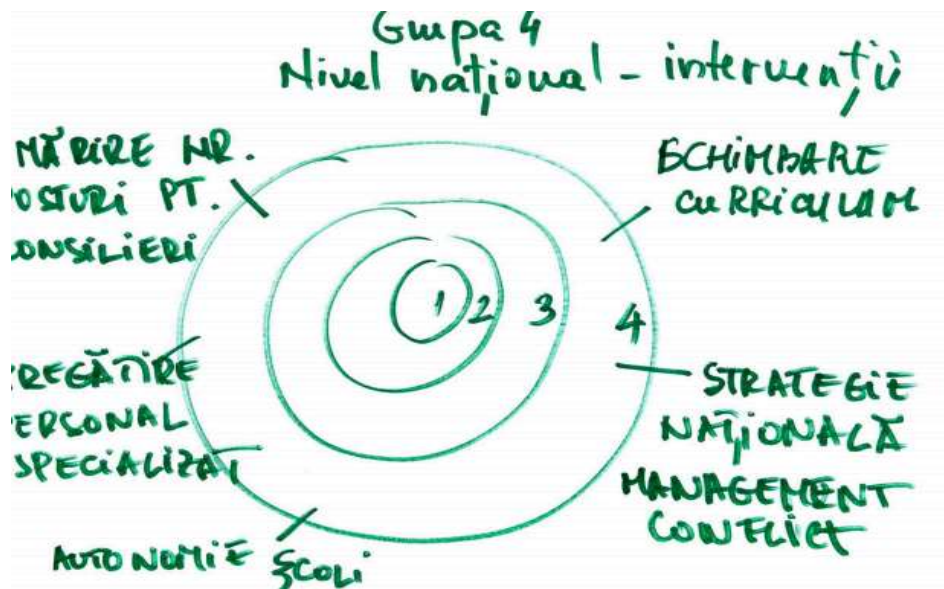 Grupa 4
Nivel național - intervenții
MĂRIRE NR.
OSTURI PT.
ONSILIERI
SCHIMBARE
CURRICULUM
1 2 3 4
REGĂTIRE
ERSONAL
SPECIALIZAT
STRATEGIE
NAȚIONALĂ
MANAGEMENT
CONFLICT
AUTONOMIE ȘCOLI